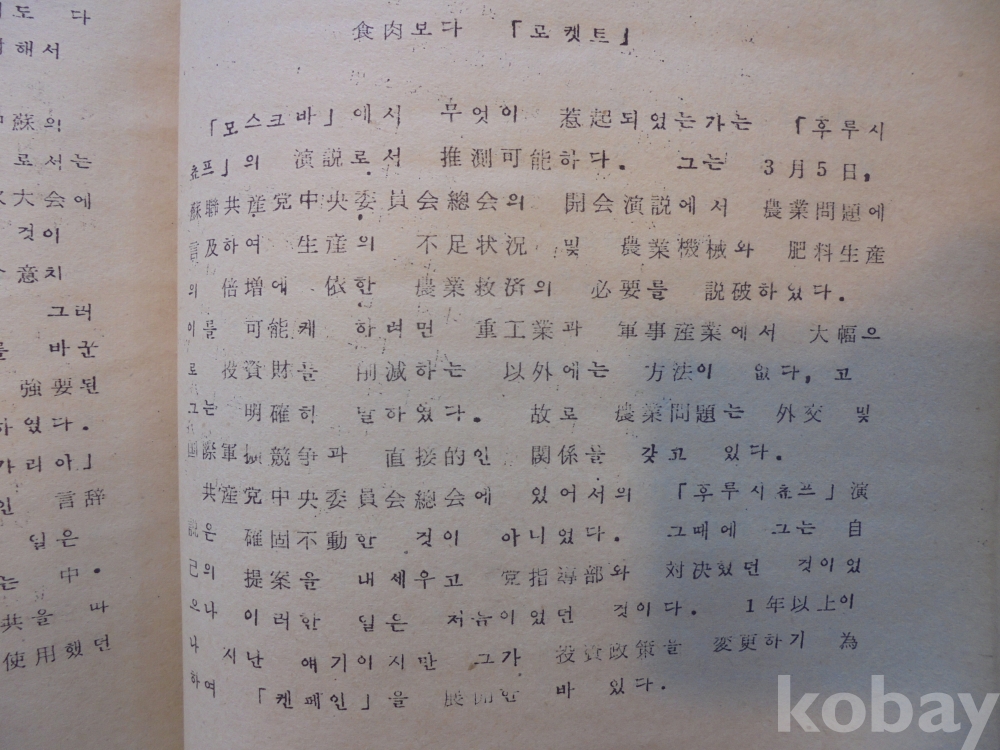 이도 다
해서
蘇의
로서는
大会에
것이
意치
그러
를 바꾼
強要된
하였다.
가리아」
인 言辞
일은
는 中·
共을 따
使用했던
食肉보다 「로켓트」
「모스크바」에서 무엇이 惹起되었는가는 「후루시
쵸프」의 演説로서 推測可能하다. 그는 3月5日,
蘇聯共産党中央委員会總会의 開会演説에서 農業問題에
言及하여 生産의 不足状況 및 農業機械와 肥料生産
의 倍增에 依한 農業救済의 必要를 説破하였다.
이를 可能케 하려면 重工業과 軍事産業에서 大幅으
로 投資財를 削減하는 以外에는 方法이 없다, 고
그는 明確히 말하였다. 故로 農業問題는 外交 및
国際軍拡競争과 直接的인 関係를 갖고 있다.
共産党中央委員会總会에 있어서의 「후루시쵸프」演
説은 確固不動한 것이 아니었다. 그때에 그는 自
己의 提案을 내세우고 党指導部와 対决했던 것이었
으나 이러한 일은 처음이었던 것이다. 1年以上이
나 지난 얘기이지만 그가 投資政策을 変更하기 為
하여 「켄페인」을 展開한 바 있다.
kobay